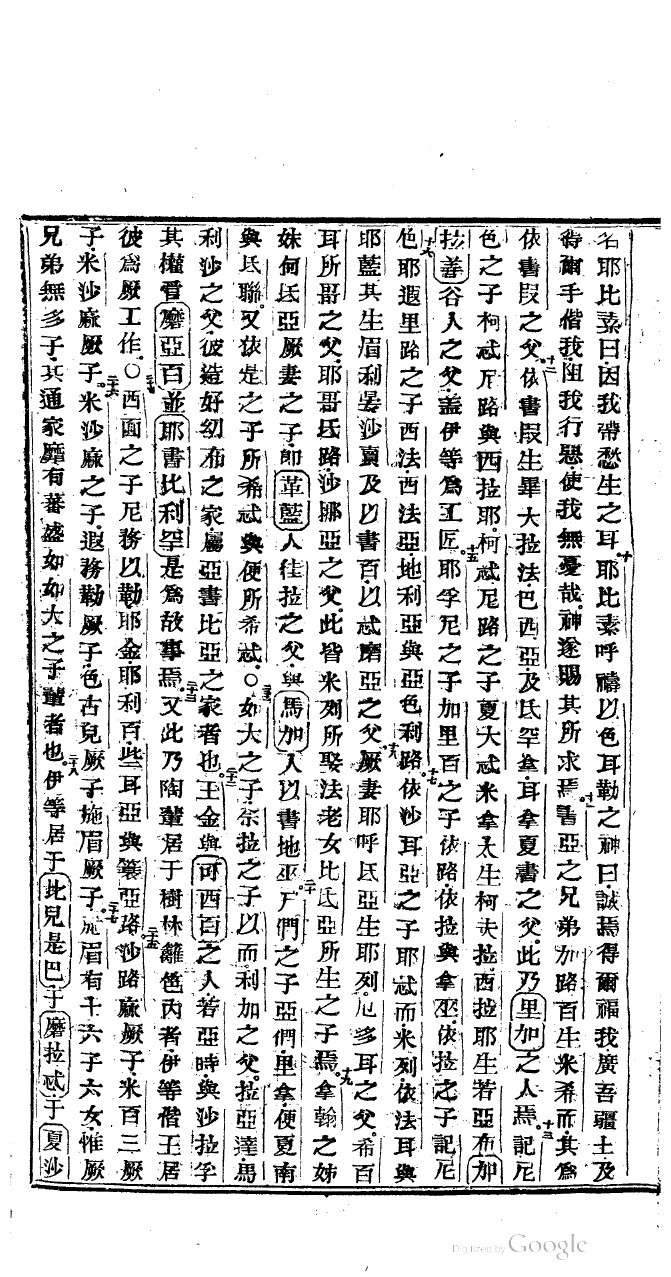 名耶比素曰因我帶愁生之耳十耶比素呼禱以色耳勒之神曰誠焉得爾福我廣吾疆土及
得爾手偕我阻我行惡使我無憂哉神遂賜其所求焉十一書亞之兄弟加路百生米希而其爲
依書叚之父十二依書叚生畢大拉法巴西亞及氐罕拿耳拿夏書之父此乃里加之人焉十三記尼
色之子柯忒尼路與西拉耶柯忒尼路之子夏大忒米拿太生柯夫拉西拉耶生若亞布加
拉善谷人之父盖伊等爲工匠十五耶孚尼之子加里百之子依路依拉與拿巫依拉之子記尼
色十六耶遐里路之子西法西法亞地利亞與亞色利路十七依沙耳亞之子耶忒而米列依法耳與
耶藍其生眉利晏沙賣及以書百以忒磨亞之父十八厥妻耶呼氐亞生耶列厄多耳之父希百
耳所哥之父耶哥氐路沙挪亞之父此皆米列所娶法老女比氐亞所生之子焉十九拿翰之姊
妹何氐亞厥妻之子卽革藍人佳拉之父與馬加人以書地巫戶們二十之子亞們里拿便夏南
與氐聯又依是之子所希忒與便所希忒○如大之子示拉之子以而利加之父拉亞達馬
利沙之父彼造好幼布之家屬亞書比亞之家者也二十二王金與可西百之人若亞時與沙拉孚
其權管磨亞百並耶書比利罕是爲故事焉二十三又此乃陶輩居于樹林籬笆內者伊等偕王居
彼爲厥工作○西面之子尼務以勒耶金耶利百些耳亞與簍亞路二十五沙路厥子米百三厥
子米沙麻厥子二十六米沙麻之子遐務勒厥子色古兒厥子施眉厥子二十七施眉有十六子六女惟厥
兄弟無多子其通家靡有蕃盛如如大之子輩者也二十八伊等居于此兒是巴于磨拉忒于夏沙
Digitized by Google